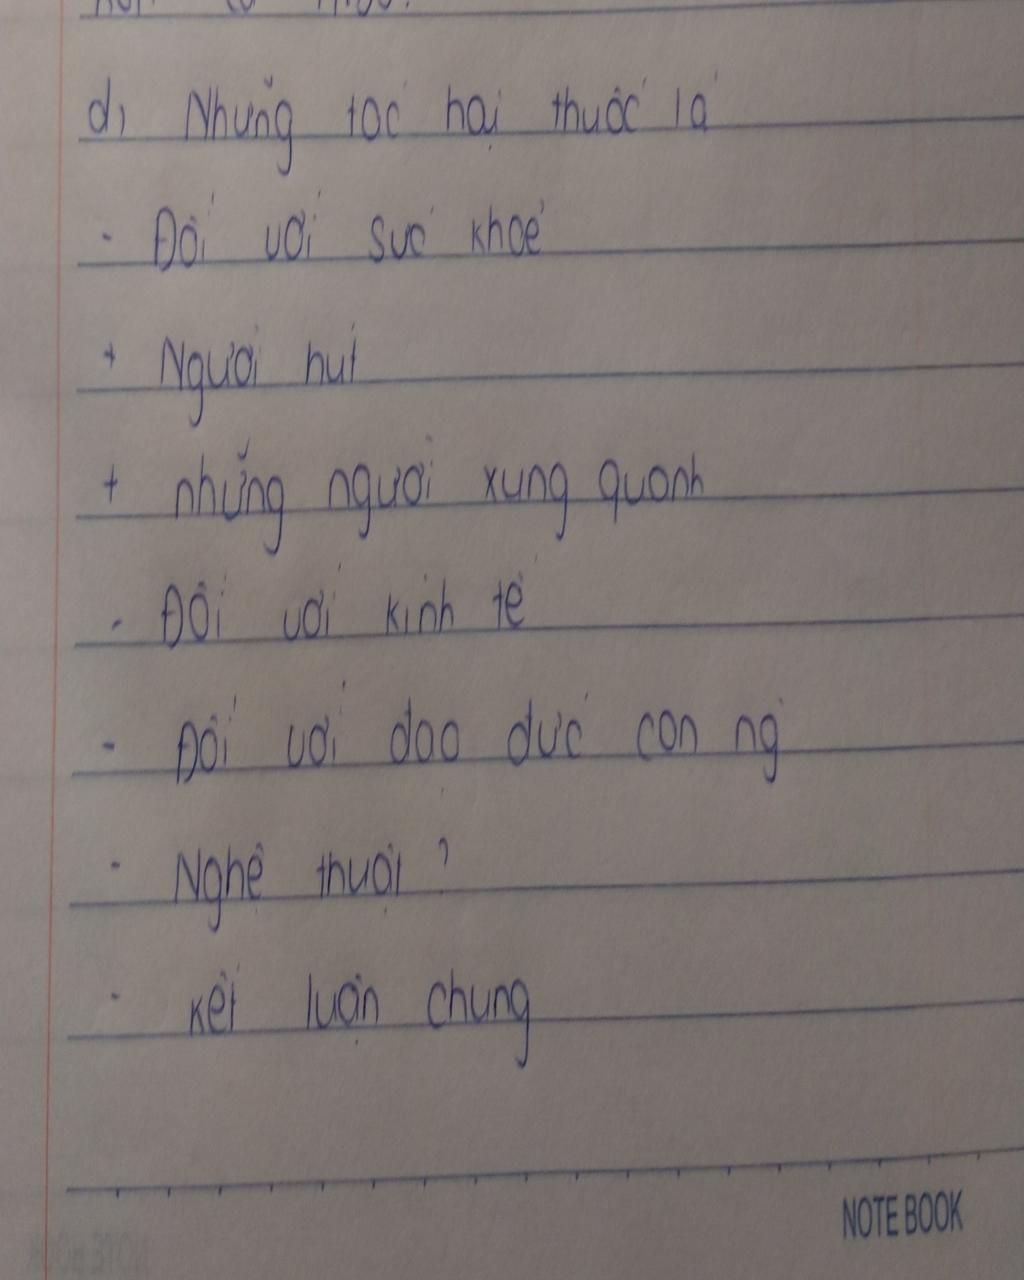 d, Những tác hại thuốc lá
- Đối với sức khoẻ
+ Người hút
+ những người xung quanh
- Đối với kinh tế
- Đối với đạo đức con ng
- Nghệ thuật ?
- kết luận chung
NOTE BOOK